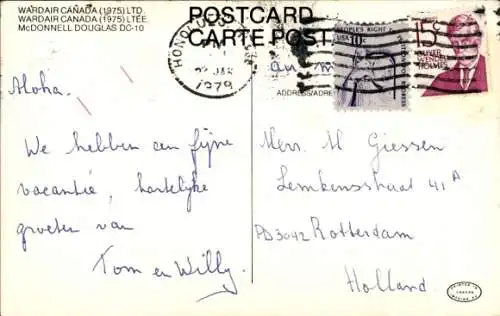 WARDAIR CANADA (1975) LTD.
WARDAIR CANADA (1975) LTÉE.
McDONNELL DOUGLAS DC-10
POSTCARD
CARTE POST
HONOLULU
PM
JAN
1979
USA 10c
15c
OLIVER
WENDELL
HOLMES
ADDRESS/ADRE
Aloha.
We hebben een fijne
vacantie, hartelijke
groeten van
Tom en Willy.
Mevr. M Giessen
Lemkensstraat 41A
PD 3042 Rotterdam
Holland
PRINTED IN
CANADA